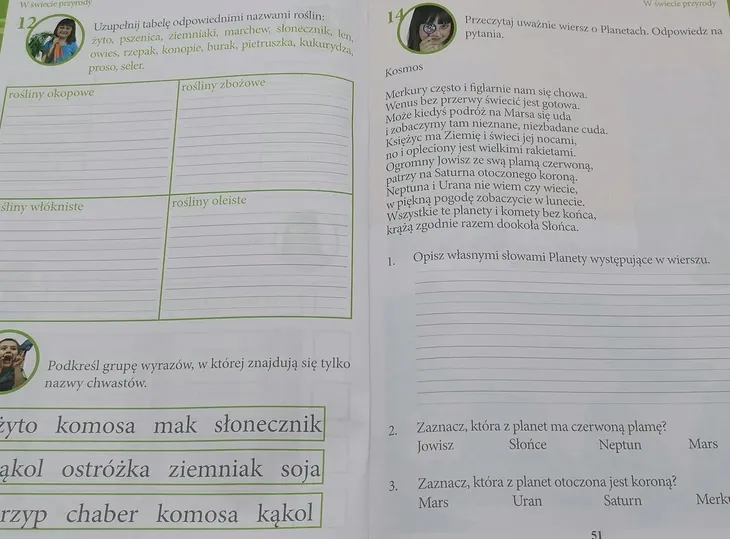 W świecie przyrody
12
Uzupełnij tabelę odpowiednimi nazwami roślin:
żyto, pszenica, ziemniaki, marchew, słonecznik, len,
owies, rzepak, konopie, burak, pietruszka, kukurydza,
proso, seler.
rośliny okopowe
rośliny zbożowe
śliny włókniste
rośliny oleiste
Podkreśl grupę wyrazów, w której znajdują się tylko
nazwy chwastów.
żyto komosa mak słonecznik
ąkol ostróżka ziemniak soja
rzyp chaber komosa kąkol
W świecie przyrody
14
Przeczytaj uważnie wiersz o Planetach. Odpowiedz na
pytania.
Kosmos
Merkury często i figlarnie nam się chowa.
Wenus bez przerwy świecić jest gotowa.
Może kiedyś podróż na Marsa się uda
i zobaczymy tam nieznane, niezbadane cuda.
Księżyc ma Ziemię i świeci jej nocami,
no i opleciony jest wielkimi rakietami.
Ogromny Jowisz ze swą plamą czerwoną,
patrzy na Saturna otoczonego koroną.
Neptuna i Urana nie wiem czy wiecie,
w piękną pogodę zobaczycie w lunecie.
Wszystkie te planety i komety bez końca,
krążą zgodnie razem dookoła Słońca.
1. Opisz własnymi słowami Planety występujące w wierszu.
2. Zaznacz, która z planet ma czerwoną plamę?
Jowisz Słońce Neptun Mars
3. Zaznacz, która z planet otoczona jest koroną?
Mars Uran Saturn Merku
51